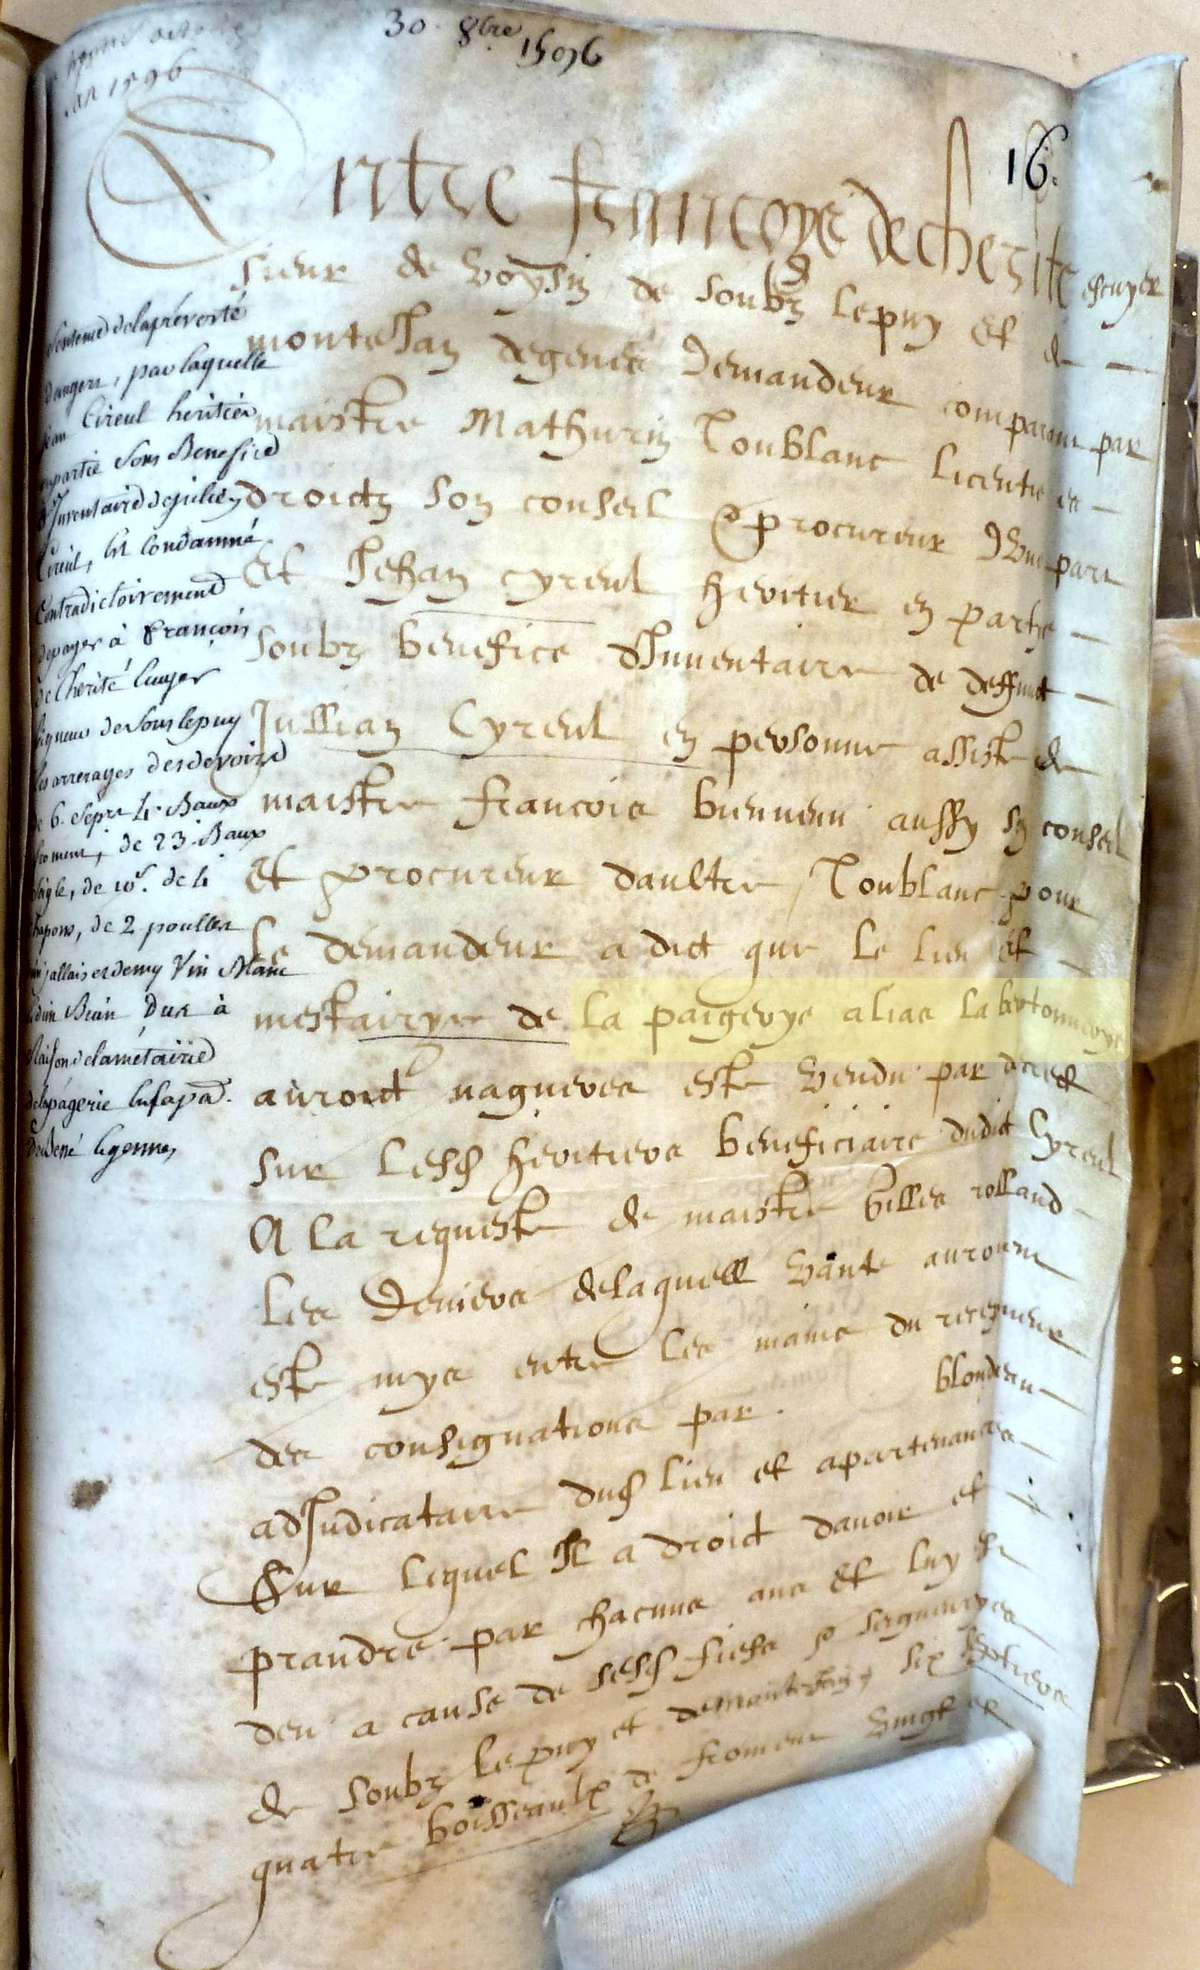 30. 8bre 1596
lan 1596
16.
Entre francoys de cherite escuyer
sieur de Voysin de soubz le puy et de
montellan degenes demandeur comparant par
maistre Mathurin Toublanc licentie es
droictz son conseil & procureur d'une part
Et Jehan Cyreul heritier en partie
soubz benefice d'Inventaire de deffunct
Jullian Cyreul en personne assiste de
maistre francois bienvenu aussy son conseil
et procureur daultre Toublanc pour
le demandeur a dict que le lieu et
mestairye de la paigerye alias la bretonnerye
auroit nagueres este vendu par decret
sur lesd heritiers beneficiaire dudit Cyreul
A la requeste de maistre gilles rolland
Les deniers de laquelle vante auroient
este mys entre les mains du recepveur
des consignations par blondeau
adJudicataire dud lieu et apartenances
Sur lequel Il a droict davoir et
prandre par chacuns ans et luy est
deu a cause de sesd fiefs & seigneuryes
de soubz le puy et de montellan six septiers
quatre boisseaulx de froment vingt et
Sentence de la prévosté
d'angers, par laquelle
jean Cireul heritier
en partie sous Benefice
d'Inventaire de julien
Cireul, est Condamné
Contradictoirement
de payer à François
de Cherité Ecuyer
Seigneur de Sous le puy
les arrerages des devoirs
de 6. Septrs 4. Baux
froment, de 23. Baux
seigle, de 10s. de 4
chapons, de 2 poulles
jallais et demy Vin Blanc
d'un Bian Dus à
Raison de la métairie
de la pagerie